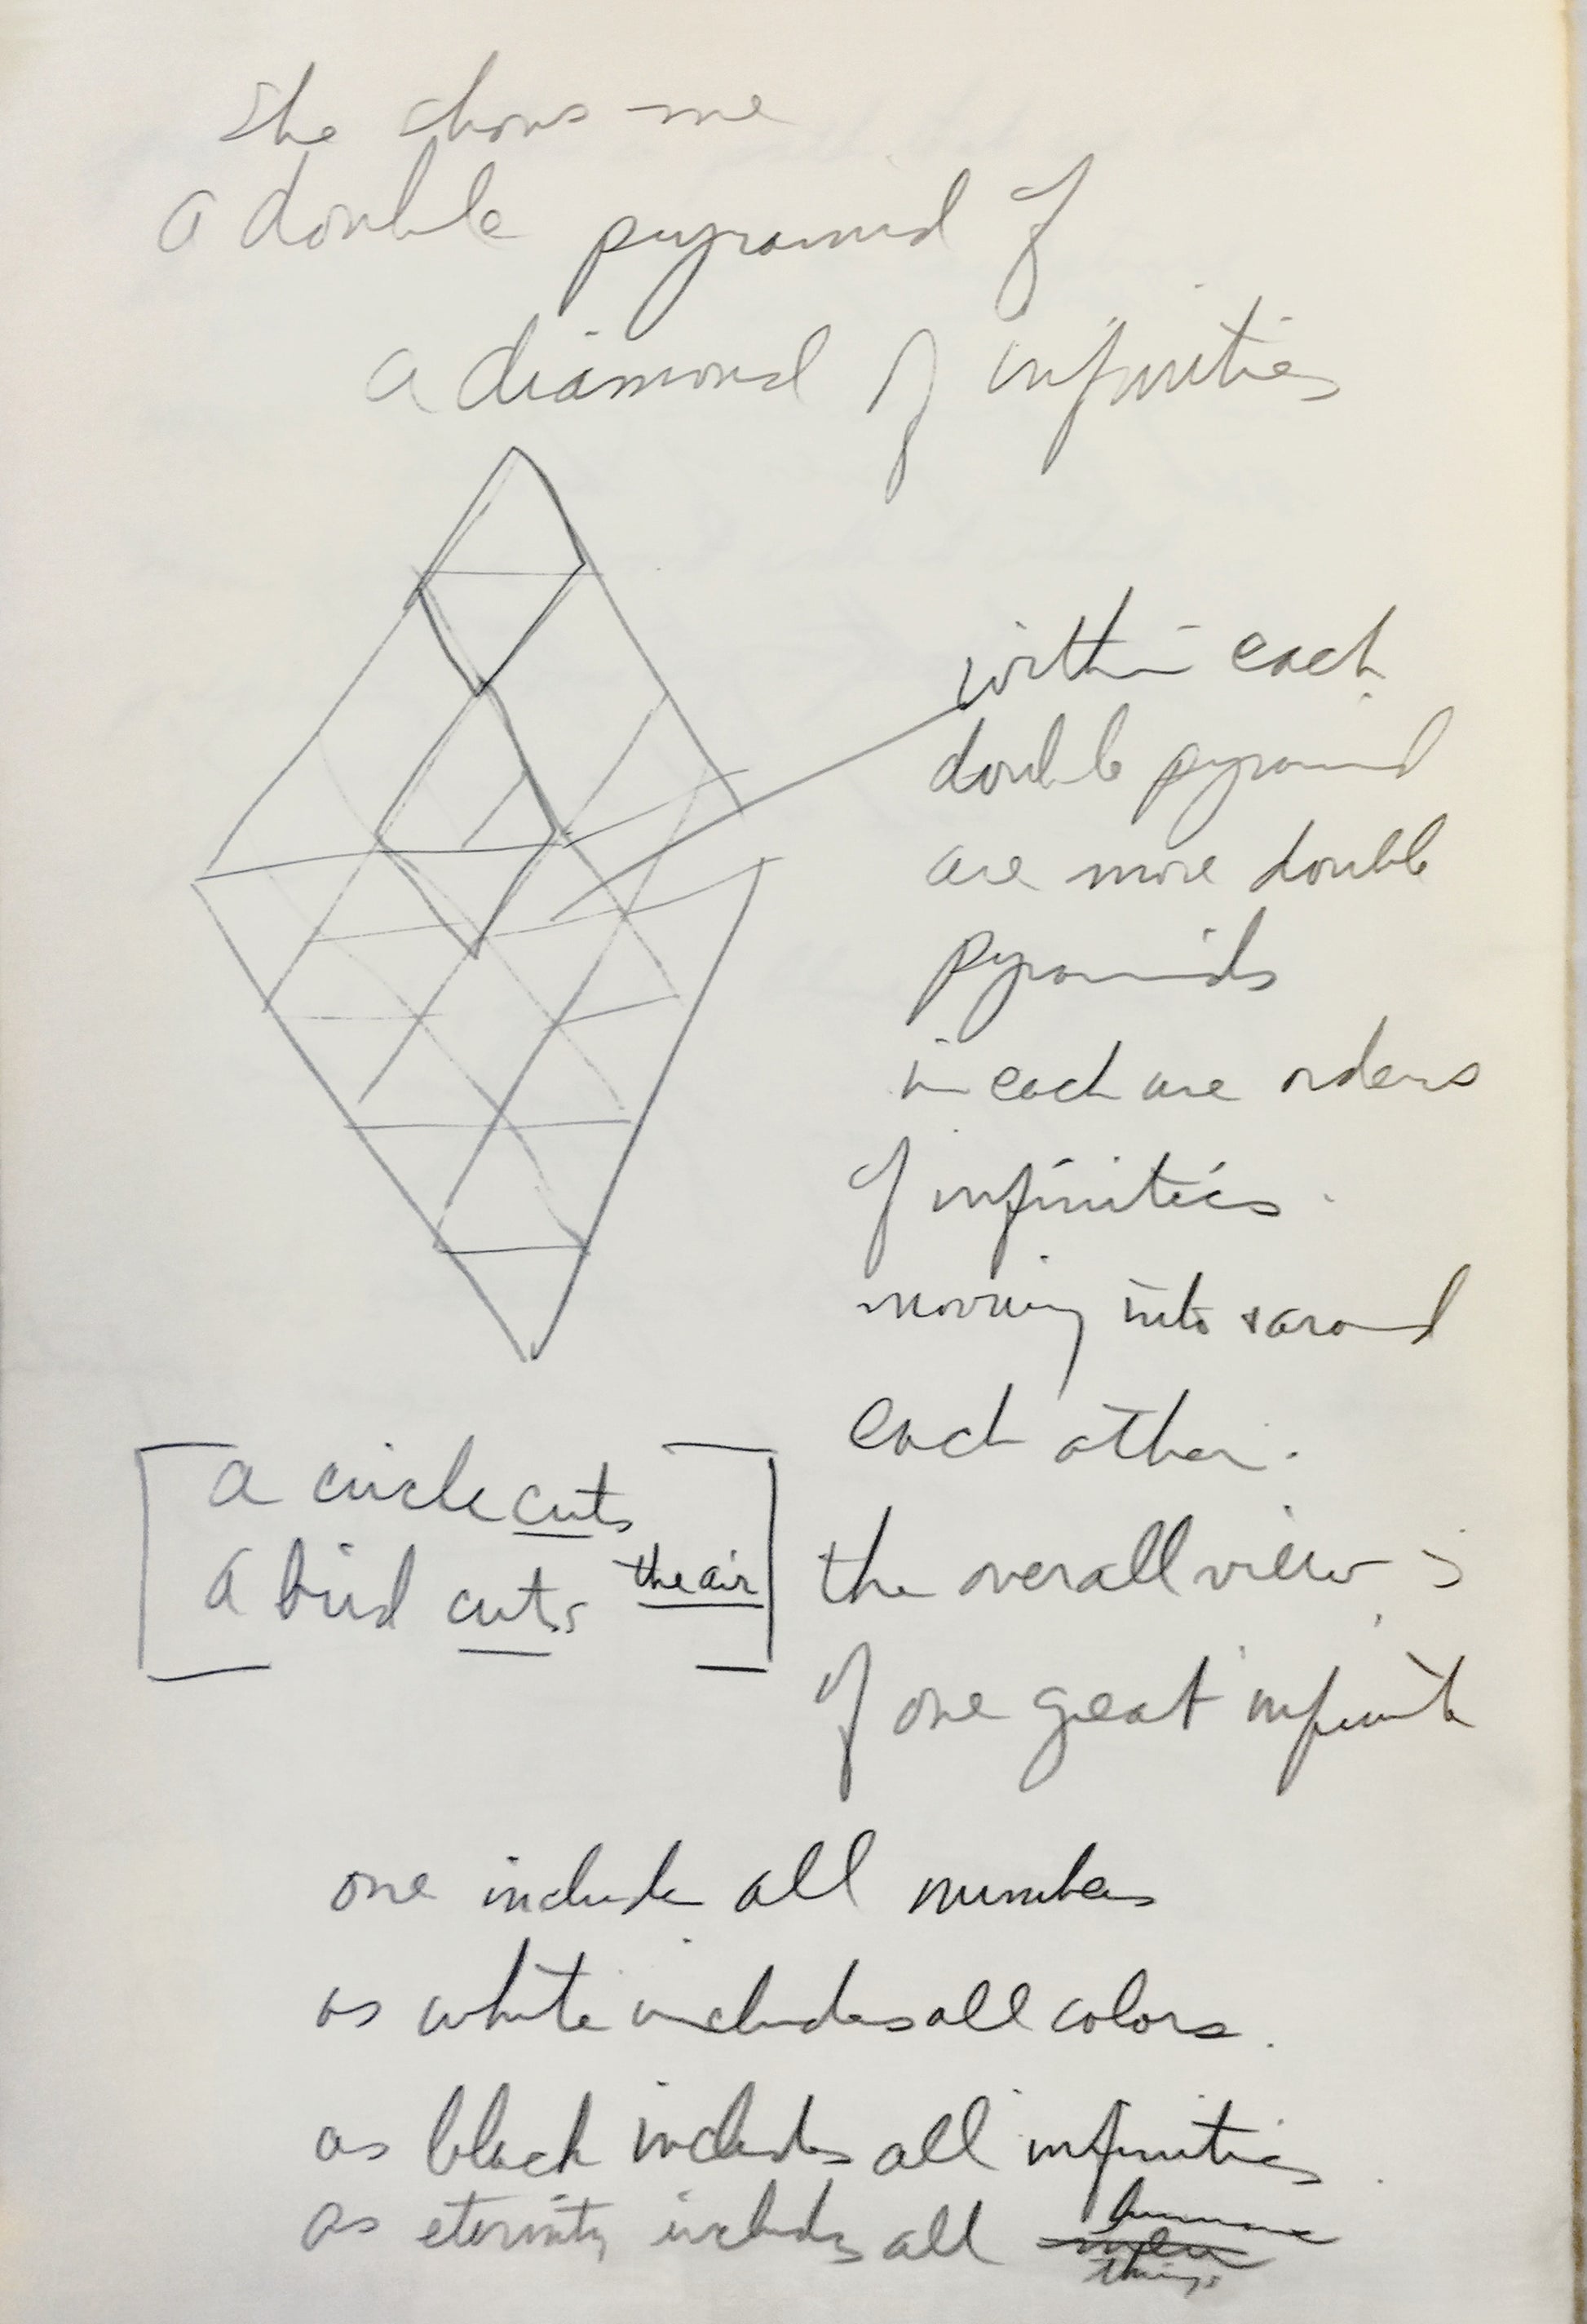 She shows me
a double pyramid of
a diamond of infinities
within each
double pyramid
are more double
pyramids
in each are orders
of infinities.
moving into & around
each other.
the overall view is
of one great infinite
[a circle cuts
a bird cuts the air]
one include all numbers
as white includes all colors.
as black includes all infinities.
as eternity includes all
things